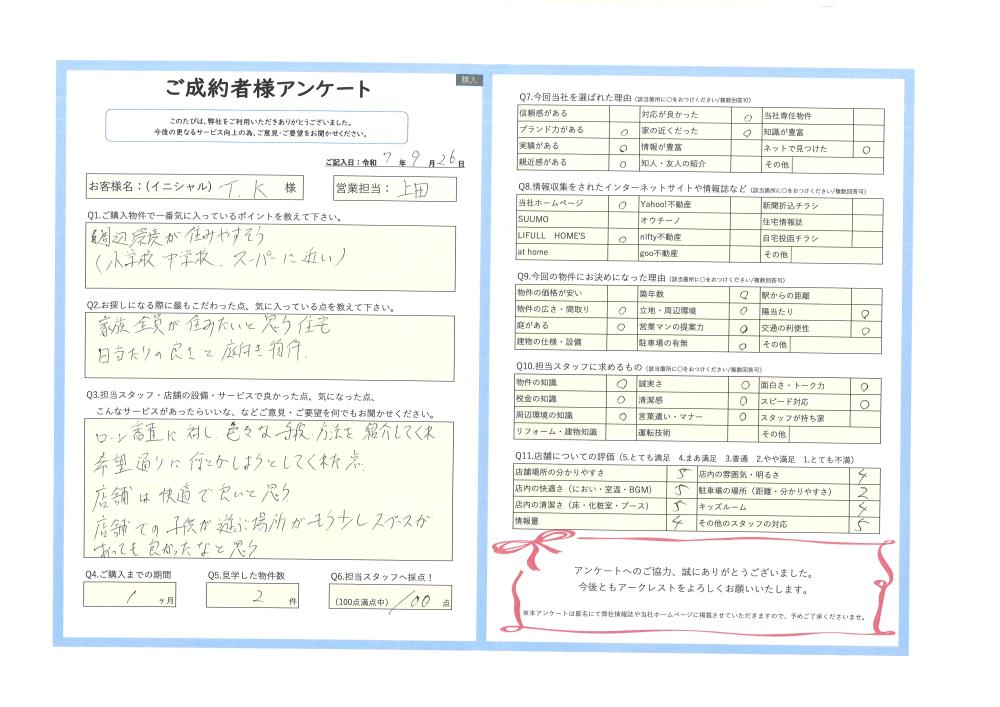 購入
ご成約者様アンケート
このたびは、弊社をご利用いただきありがとうございました。
今後の更なるサービス向上の為、ご意見・ご要望をお聞かせください。
ご記入日：令和 7 年 9 月 26 日
お客様名：（イニシャル） T.K 様
営業担当： 上田
Q1.ご購入物件で一番気に入っているポイントを教えて下さい。
周辺環境が住みやすそう
（小学校 中学校、スーパーに近い）
Q2.お探しになる際に最もこだわった点、気に入っている点を教えて下さい。
家族全員が住みたいと思う住宅
日当たりの良さと庭付き物件.
Q3.担当スタッフ・店舗の設備・サービスで良かった点、気になった点、
こんなサービスがあったらいいな、などご意見・ご要望を何でもお聞かせください。
ローン審査に対し、色々な手段、方法を紹介してくれ
希望通りに何とかしようとしてくれた点.
店舗は快適で良いと思う
店舗での子供が遊ぶ場所がもう少しスペースが
あっても良かったなと思う
Q4.ご購入までの期間
1 ヶ月
Q5.見学した物件数
2 件
Q6.担当スタッフへ採点！
（100点満点中） 100 点
Q7.今回当社を選ばれた理由（該当箇所に○をおつけください/複数回答可）
信頼感がある 対応が良かった ○ 当社専任物件
ブランド力がある ○ 家の近くだった ○ 知識が豊富
実績がある ○ 情報が豊富 ネットで見つけた ○
親近感がある ○ 知人・友人の紹介 その他
Q8.情報収集をされたインターネットサイトや情報誌など（該当箇所に○をおつけください/複数回答可）
当社ホームページ ○ Yahoo!不動産 新聞折込チラシ
SUUMO オウチーノ 住宅情報誌
LIFULL HOME'S ○ nifty不動産 自宅投函チラシ
at home goo不動産 その他
Q9.今回の物件にお決めになった理由（該当箇所に○をおつけください/複数回答可）
物件の価格が安い 築年数 ○ 駅からの距離
物件の広さ・間取り ○ 立地・周辺環境 ○ 陽当たり ○
庭がある ○ 営業マンの提案力 ○ 交通の利便性 ○
建物の仕様・設備 駐車場の有無 ○ その他
Q10.担当スタッフに求めるもの（該当箇所に○をおつけください/複数回答可）
物件の知識 ○ 誠実さ ○ 面白さ・トーク力 ○
税金の知識 ○ 清潔感 ○ スピード対応 ○
周辺環境の知識 ○ 言葉遣い・マナー ○ スタッフが持ち家
リフォーム・建物知識 運転技術 その他
Q11.店舗についての評価（5.とても満足 4.まあ満足 3.普通 2.やや満足 1.とても不満）
店舗場所の分かりやすさ 5 店内の雰囲気・明るさ 4
店内の快適さ（におい・室温・BGM） 5 駐車場の場所（距離・分かりやすさ） 2
店内の清潔さ（床・化粧室・ブース） 5 キッズルーム 4
情報量 4 その他のスタッフの対応 5
アンケートへのご協力、誠にありがとうございました。
今後ともアークレストをよろしくお願いいたします。
※本アンケートは匿名にて弊社情報誌や当社ホームページに掲載させていただきますので、予めご了承くださいませ。